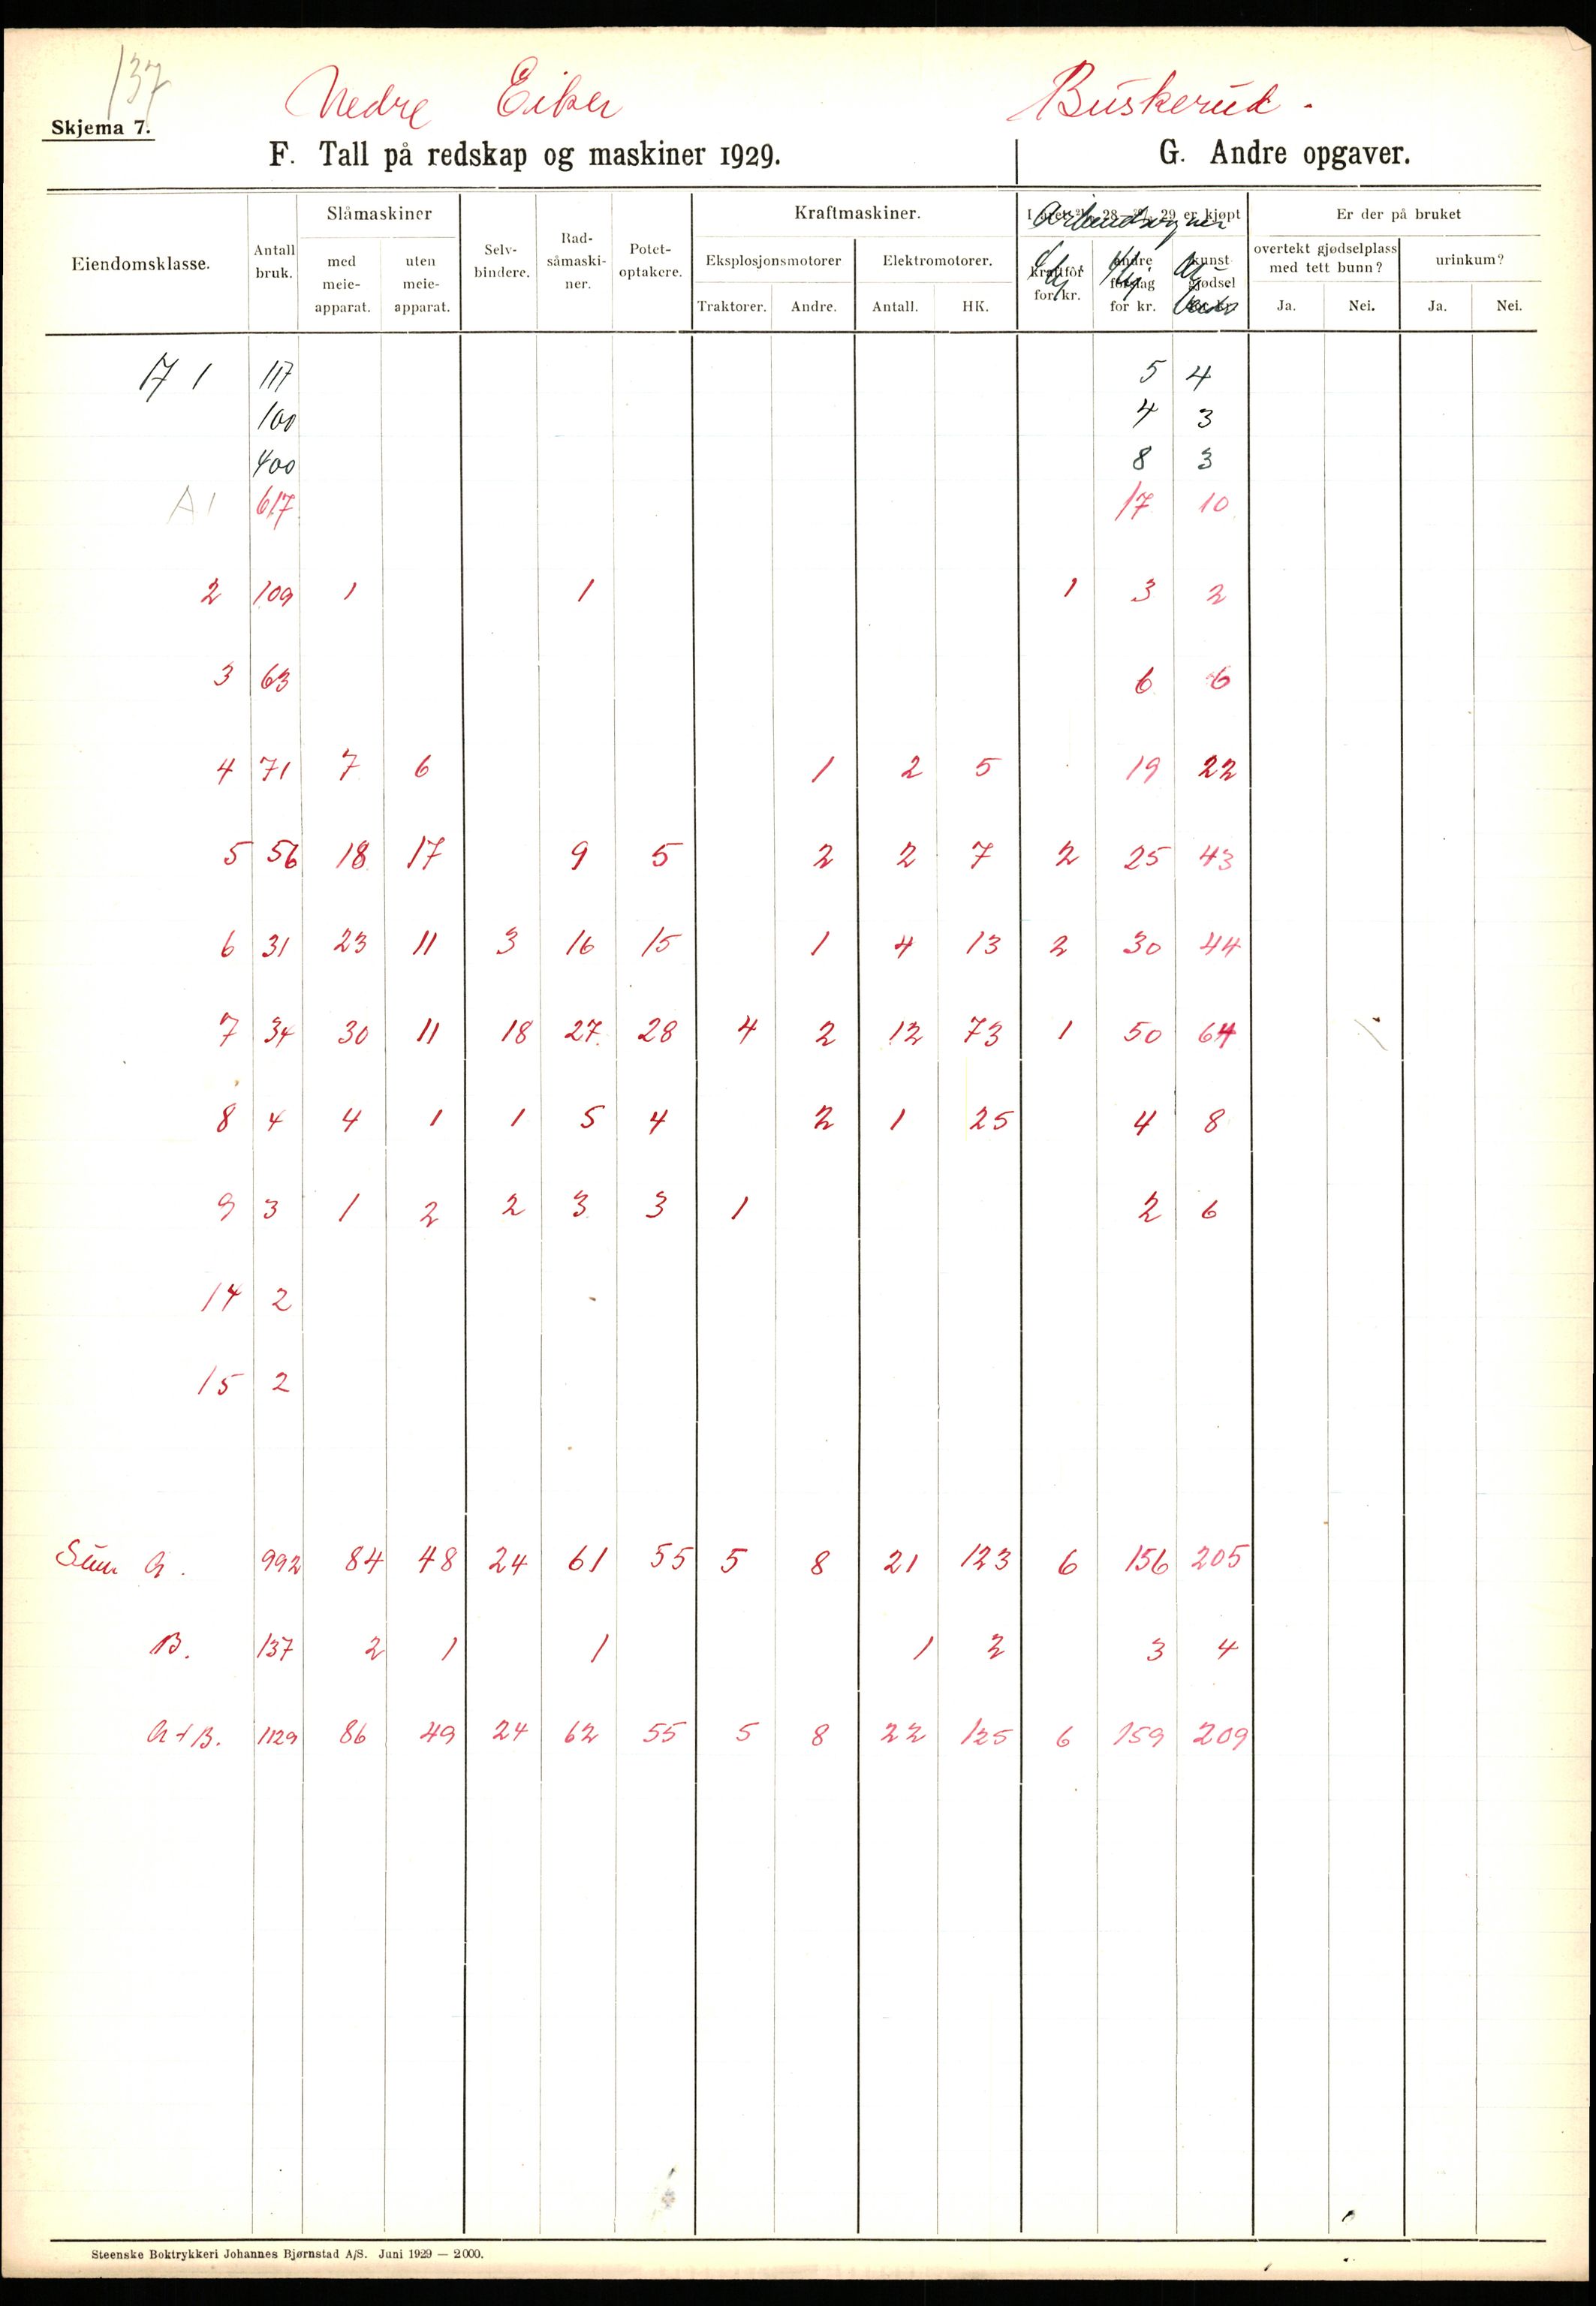 137
Nedre Eiker Buskerud.
Skjema 7.
F. Tall på redskap og maskiner 1929. G. Andre opgaver.
Slåmaskiner Kraftmaskiner. 28 29 er kjøpt Er der på bruket
Arbeidsvogner
Eiendomsklasse. Antall bruk. med meie-apparat. uten meie-apparat. Selv-bindere. Rad-såmaski-ner. Potet-optakere. Eksplosjonsmotorer Elektromotorer. kraftfôr for kr. andre for kr. kunst gjødsel overtekt gjødselplass med tett bunn? urinkum?
Traktorer. Andre. Antall. HK. Ja. Nei. Ja. Nei.
1 117 5 4
100 4 3
400 8 3
A 1 617 17 10
2 109 1 1 1 3 2
3 63 6 6
4 71 7 6 1 2 5 19 22
5 56 18 17 9 5 2 2 7 2 25 43
6 31 23 11 3 16 15 1 4 13 2 30 44
7 34 30 11 18 27 28 4 2 12 73 1 50 64
8 4 4 1 1 5 4 2 1 25 4 8
9 3 1 2 2 3 3 1 2 6
14 2
15 2
Sum A. 992 84 48 24 61 55 5 8 21 123 6 156 205
B. 137 2 1 1 1 2 3 4
A+B. 1129 86 49 24 62 55 5 8 22 125 6 159 209
Steenske Boktrykkeri Johannes Bjørnstad A/S. Juni 1929 — 2000.